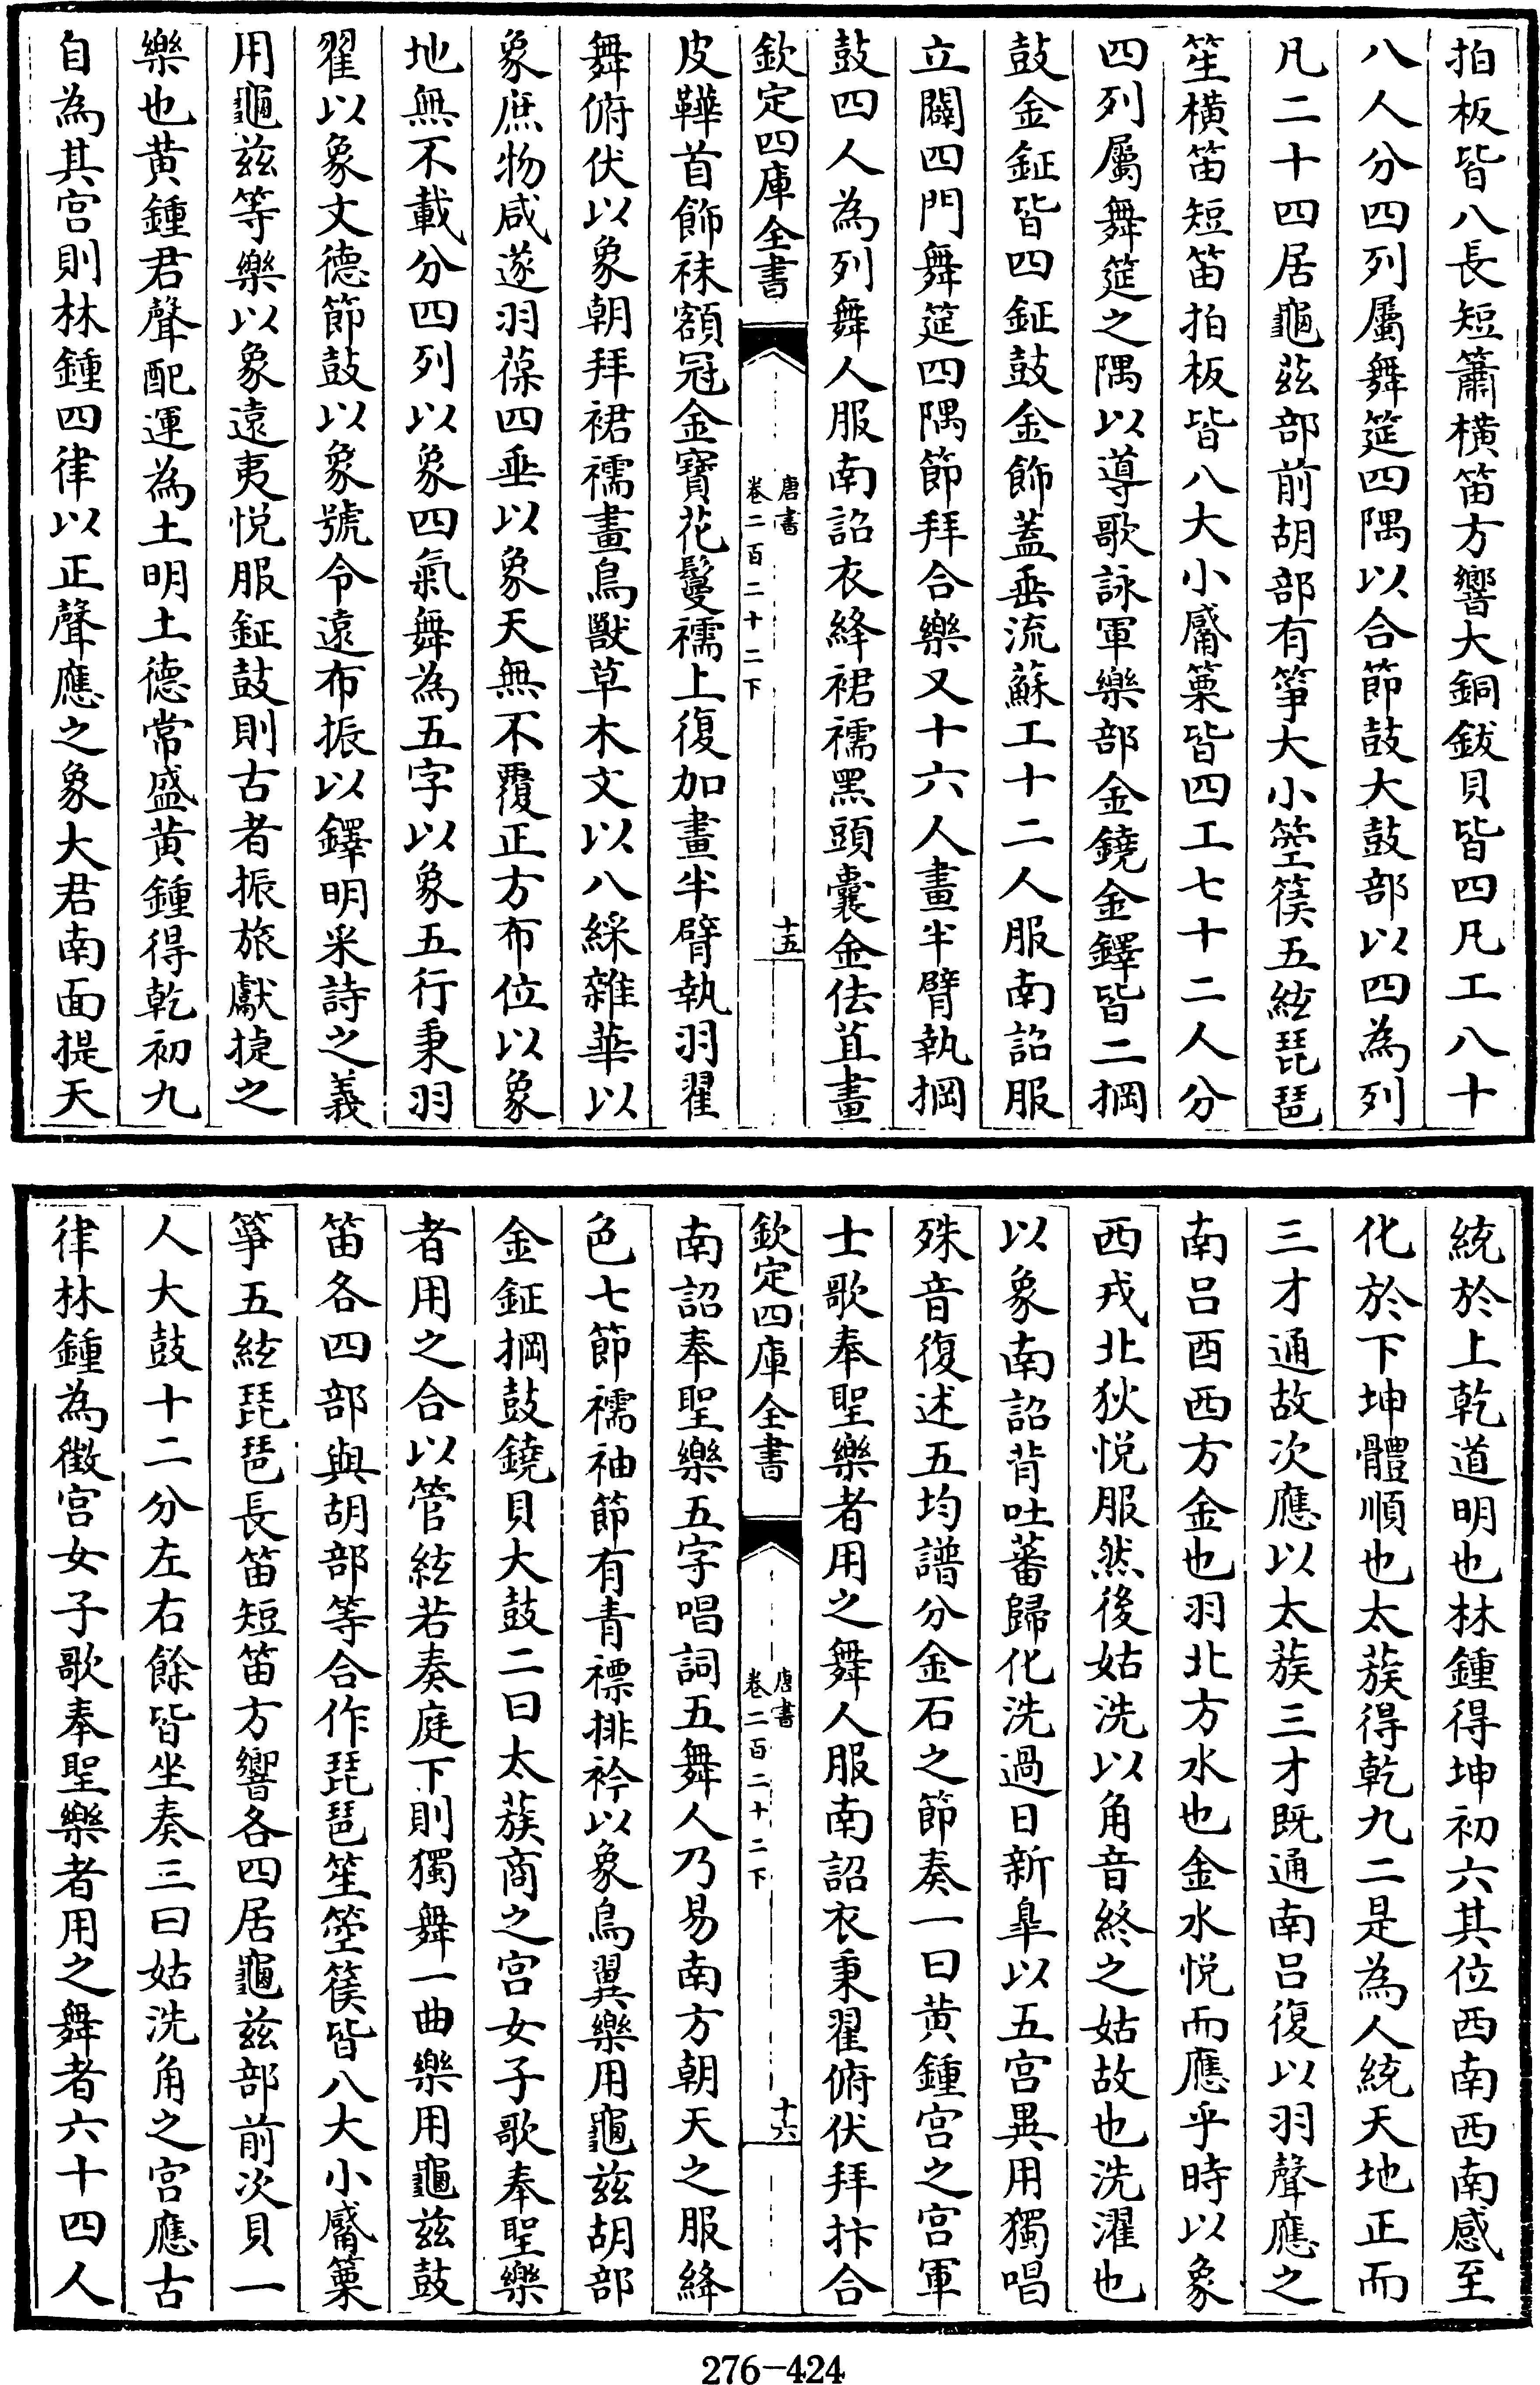 拍板皆八長短簫橫笛方響大銅鈸貝皆四凡工八十
八人分四列屬舞筵四隅以合節鼓大鼓部以四為列
凡二十四居龜兹部前胡部有箏大小箜篌五絃琵琶
笙橫笛短笛拍板皆八大小觱篥皆四工七十二人分
四列屬舞筵之隅以導歌詠軍樂部金鐃金鐸皆二掆
鼓金鉦皆四鉦鼓金飾蓋垂流蘇工十二人服南詔服
立闢四門舞筵四隅節拜合樂又十六人畫半臂執掆
鼓四人為列舞人服南詔衣絳裙襦黑頭囊金佉苴畫
欽定四庫全書 唐書 卷二百二十二下 十五
皮鞾首飾袜額冠金寶花鬘襦上復加畫半臂執羽翟
舞俯伏以象朝拜裙襦畫鳥獸草木文以八綵雜華以
象庶物咸遂羽葆四垂以象天無不覆正方布位以象
地無不載分四列以象四氣舞為五字以象五行秉羽
翟以象文德節鼓以象號令遠布振以鐸明采詩之義
用龜兹等樂以象遠夷悅服鉦鼓則古者振旅獻捷之
樂也黄鍾君聲配運為土明土德常盛黄鍾得乾初九
自為其宫則林鍾四律以正聲應之象大君南面提天
統於上乾道明也林鍾得坤初六其位西南西南感至
化於下坤體順也太蔟得乾九二是為人統天地正而
三才通故次應以太蔟三才既通南呂復以羽聲應之
南呂酉西方金也羽北方水也金水悅而應乎時以象
西戎北狄悅服然後姑洗以角音終之姑故也洗濯也
以象南詔背吐蕃歸化洗過日新臯以五宫異用獨唱
殊音復述五均譜分金石之節奏一曰黄鍾宫之宫軍
士歌奉聖樂者用之舞人服南詔衣秉翟俯伏拜抃合
欽定四庫全書 唐書 卷二百二十二下 十六
南詔奉聖樂五字唱詞五舞人乃易南方朝天之服絳
色七節襦袖節有青褾排衿以象鳥翼樂用龜兹胡部
金鉦掆鼓鐃貝大鼓二曰太蔟商之宫女子歌奉聖樂
者用之合以管絃若奏庭下則獨舞一曲樂用龜兹鼓
笛各四部與胡部等合作琵琶笙箜篌皆八大小觱篥
箏五絃琵琶長笛短笛方響各四居龜兹部前次貝一
人大鼓十二分左右餘皆坐奏三曰姑洗角之宫應古
律林鍾為徵宫女子歌奉聖樂者用之舞者六十四人
276-424